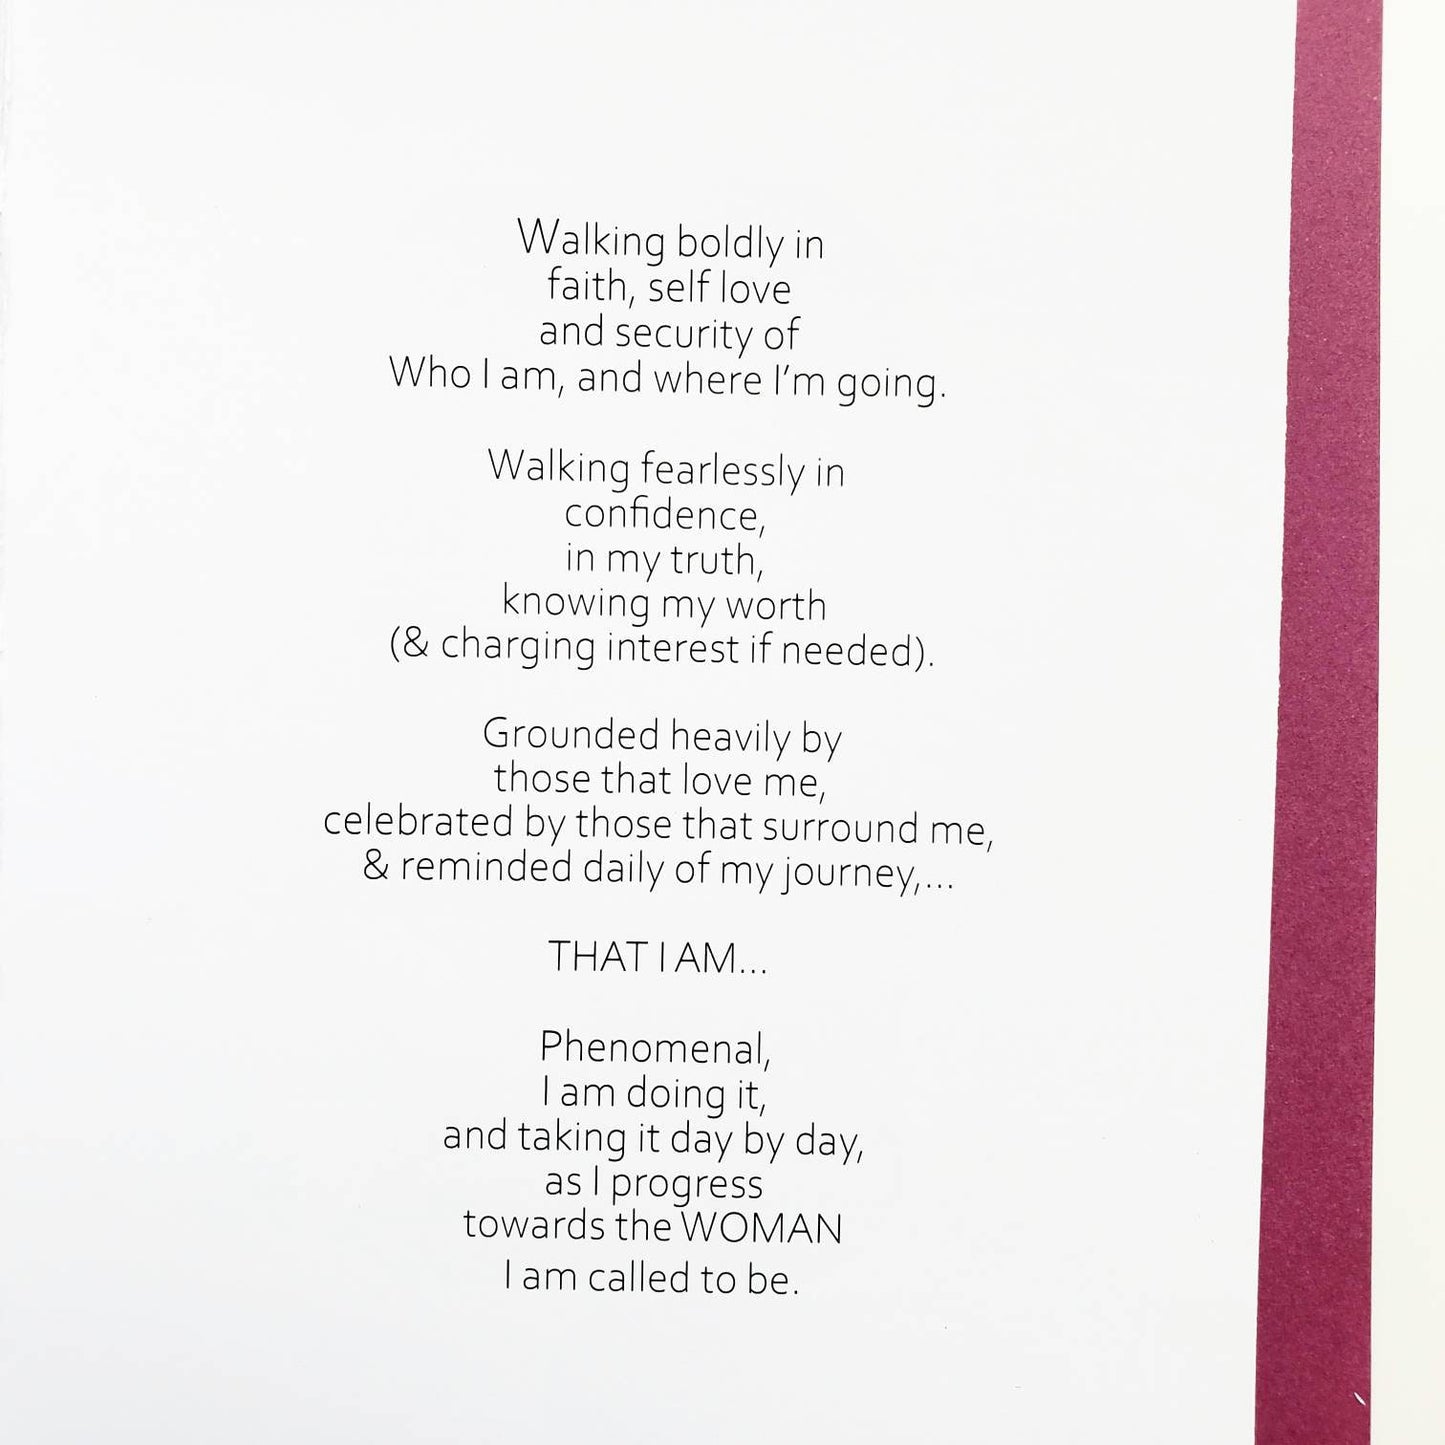 Walking boldly in
faith, self love
and security of
Who I am, and where I'm going.
Walking fearlessly in
confidence,
in my truth,
knowing my worth
(& charging interest if needed).
Grounded heavily by
those that love me,
celebrated by those that surround me,
& reminded daily of my journey,...
THAT I AM...
Phenomenal,
I am doing it,
and taking it day by day,
as I progress
towards the WOMAN
I am called to be.